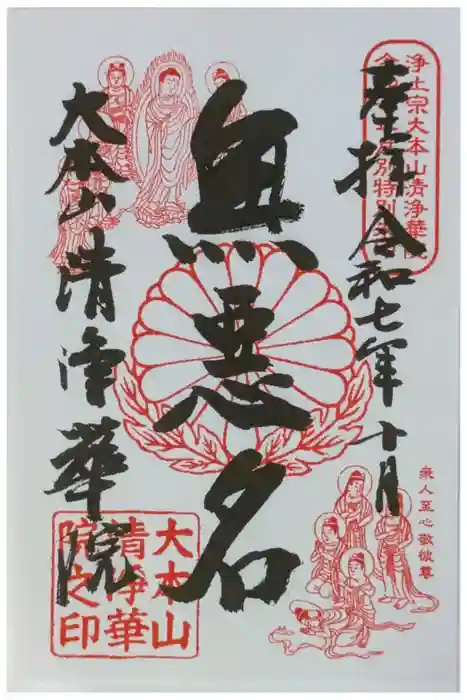 浄土宗大本山清浄華院
奉拝 令和七年十月
無悪名
大本山清浄華院
衆人至心敬彼尊
大本山
清浄華
院之印